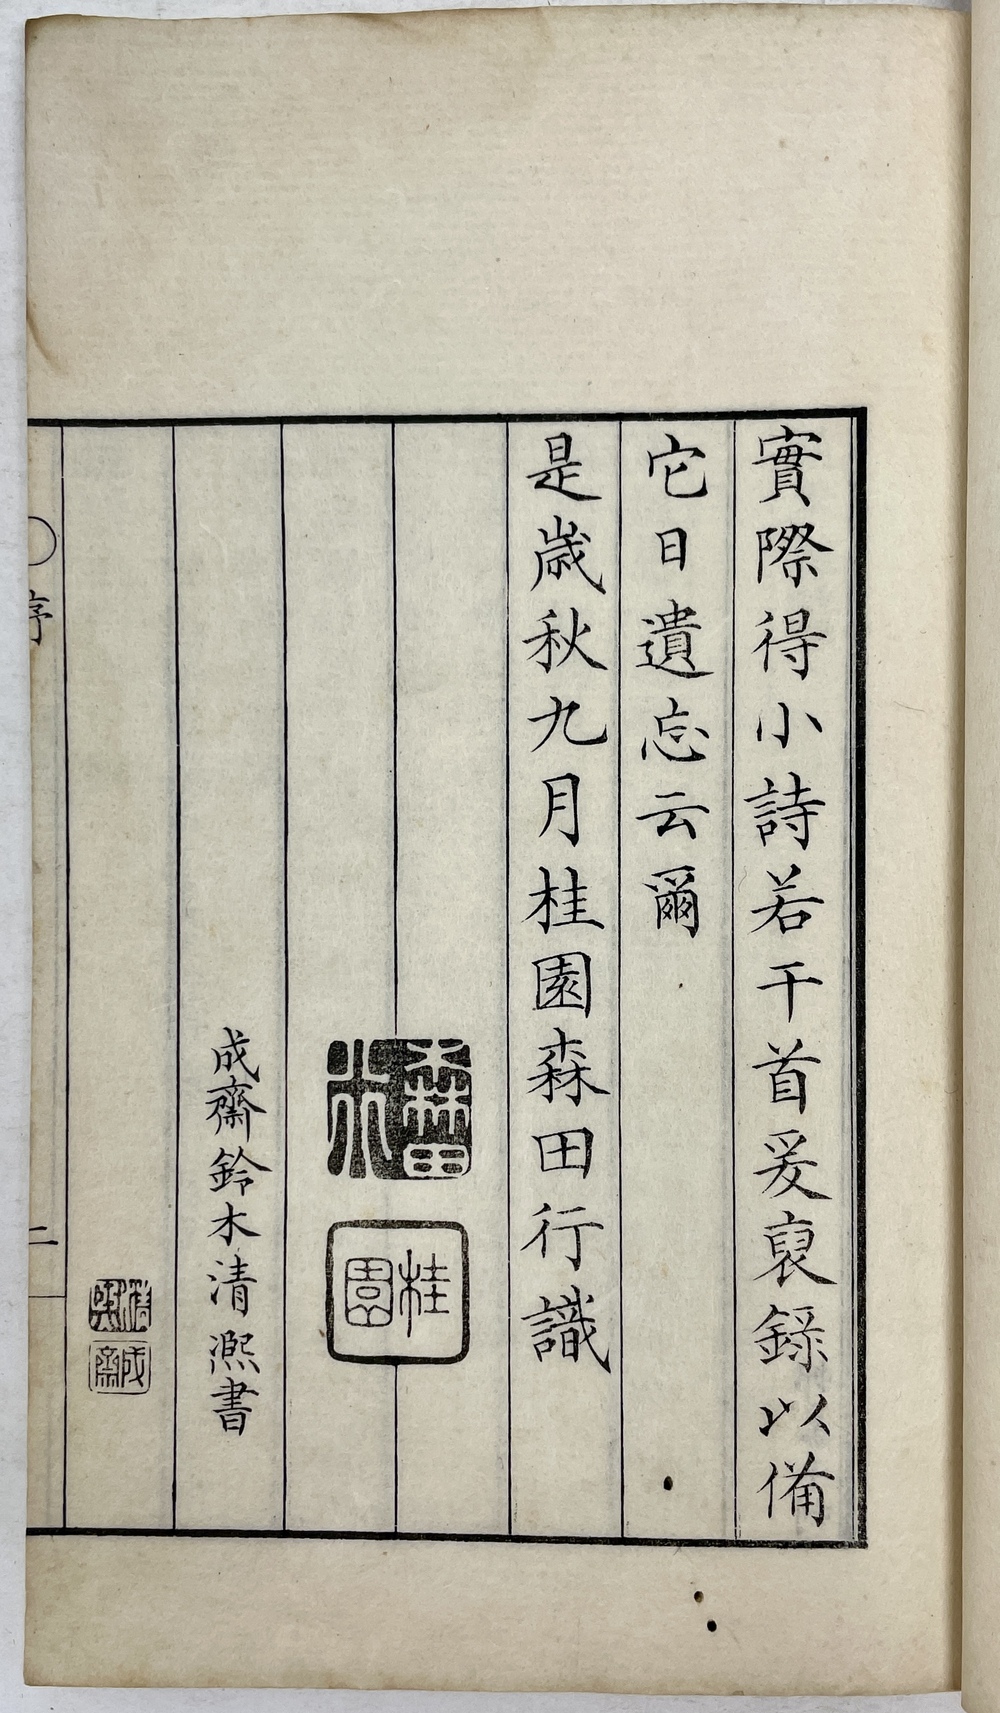 實際得小詩若干首爰裒錄以備
它日遺忘云爾
是歳秋九月桂園森田行識
森田
桂園
成齋鈴木清凞書
成齋
序
二